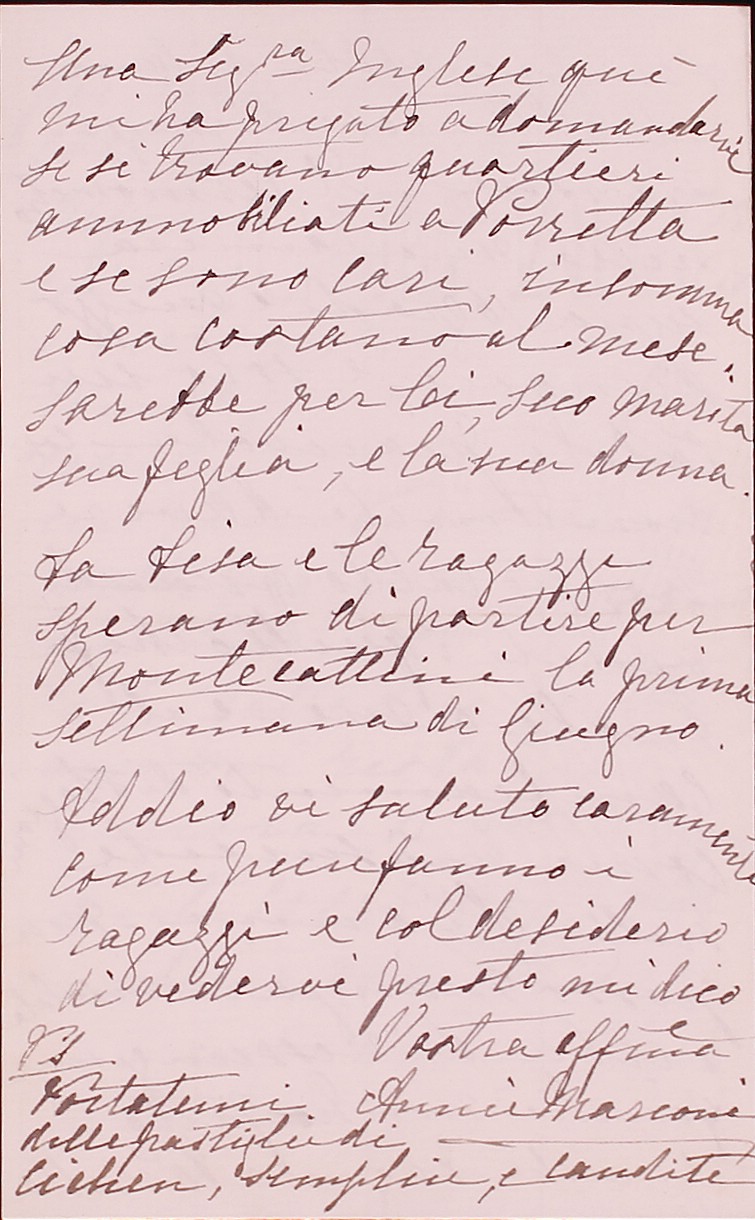 Una Sigra Inglese quì
mi ha pregato a domandarvi
se si trovano quartieri
ammobiliati a Porretta
e se sono cari, insomma
cosa costano al mese.
sarebbe per lei, suo marito
sua figlia, e la sua donna.
La Lisa e le ragazze
sperano di partire per
Montecattini la prima
settimana di Giugno.
Addio vi saluto caramente
come pure fanno i
ragazzi e col desiderio
di vedervi presto mi dico
Vostra affma
Annie Marconi
PS
Portatemi
delle pastiglie di
Lichen, semplice, e candite